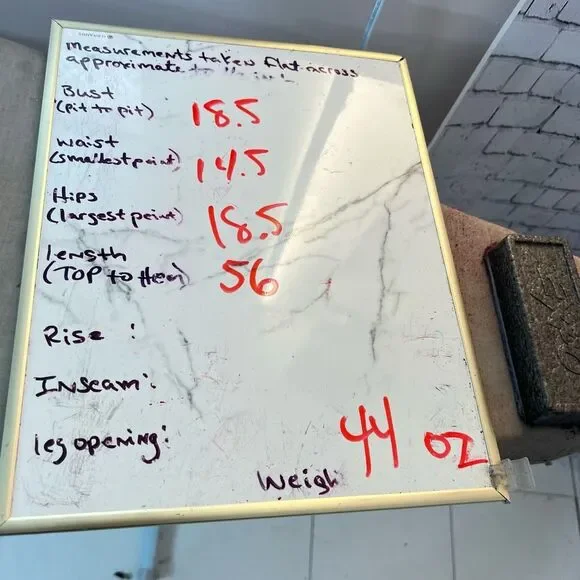 Measurements taken flat across
approximate
Bust
(pit to pit) 18.5
waist
(smallest point) 14.5
Hips
(largest point) 18.5
length
(TOP to Hem) 56
Rise :
Inseam:
leg opening:
44 oz
Weigh